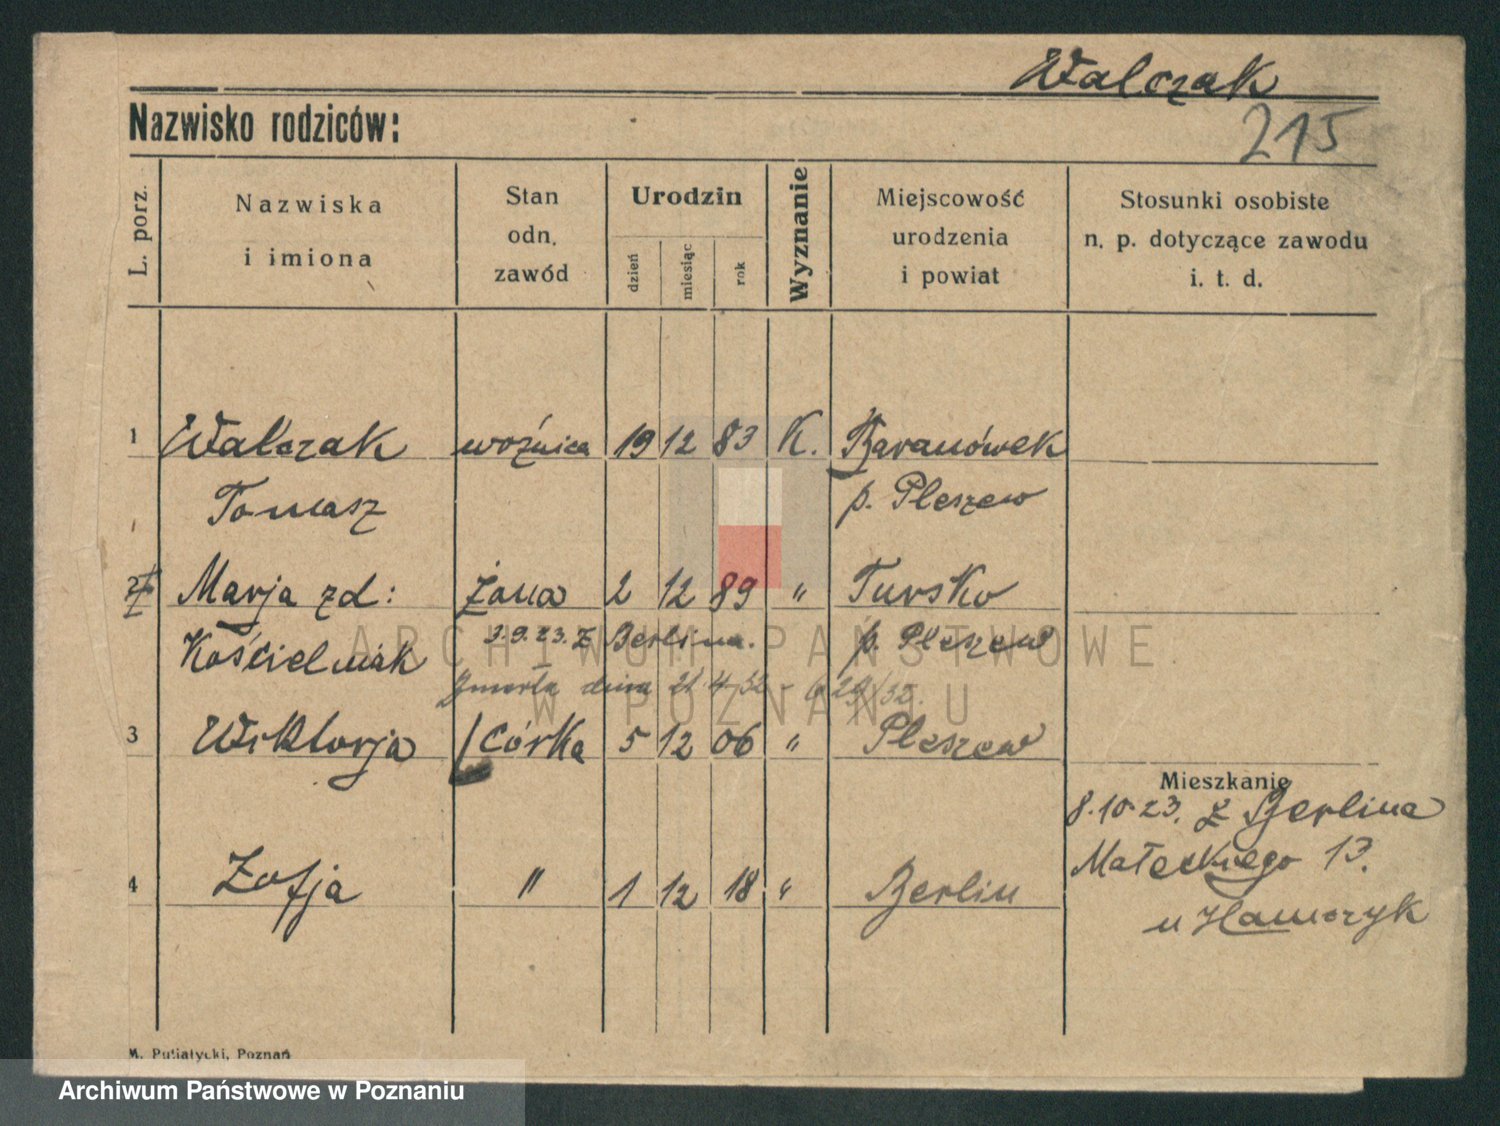 Walczak
Nazwisko rodziców:
215
L. porz.
Nazwiska
i imiona
Stan
odn.
zawód
Urodzin
dzień
miesiąc
rok
Wyznanie
Miejscowość
urodzenia
i powiat
Stosunki osobiste
n. p. dotyczące zawodu
i. t. d.
1 Walczak woźnica 19 12 83 K. Baranówek
Tomasz p. Pleszew
2 Marja zd: żona 2 12 89 " Tursko
3.9.23. z Berlina.
Kościelniak p. Pleszew
Zmarła dnia 21 4 32 - 629/32.
3 Wiktorja córka 5 12 06 " Pleszew
Mieszkanie
8.10.23. z Berlina
Małeckiego 13.
4 Zofja " 1 12 18 " Berlin
u Hamczyk
M. Putiatycki, Poznań
ARCHIWUM PAŃSTWOWE
W POZNANIU
Archiwum Państwowe w Poznaniu